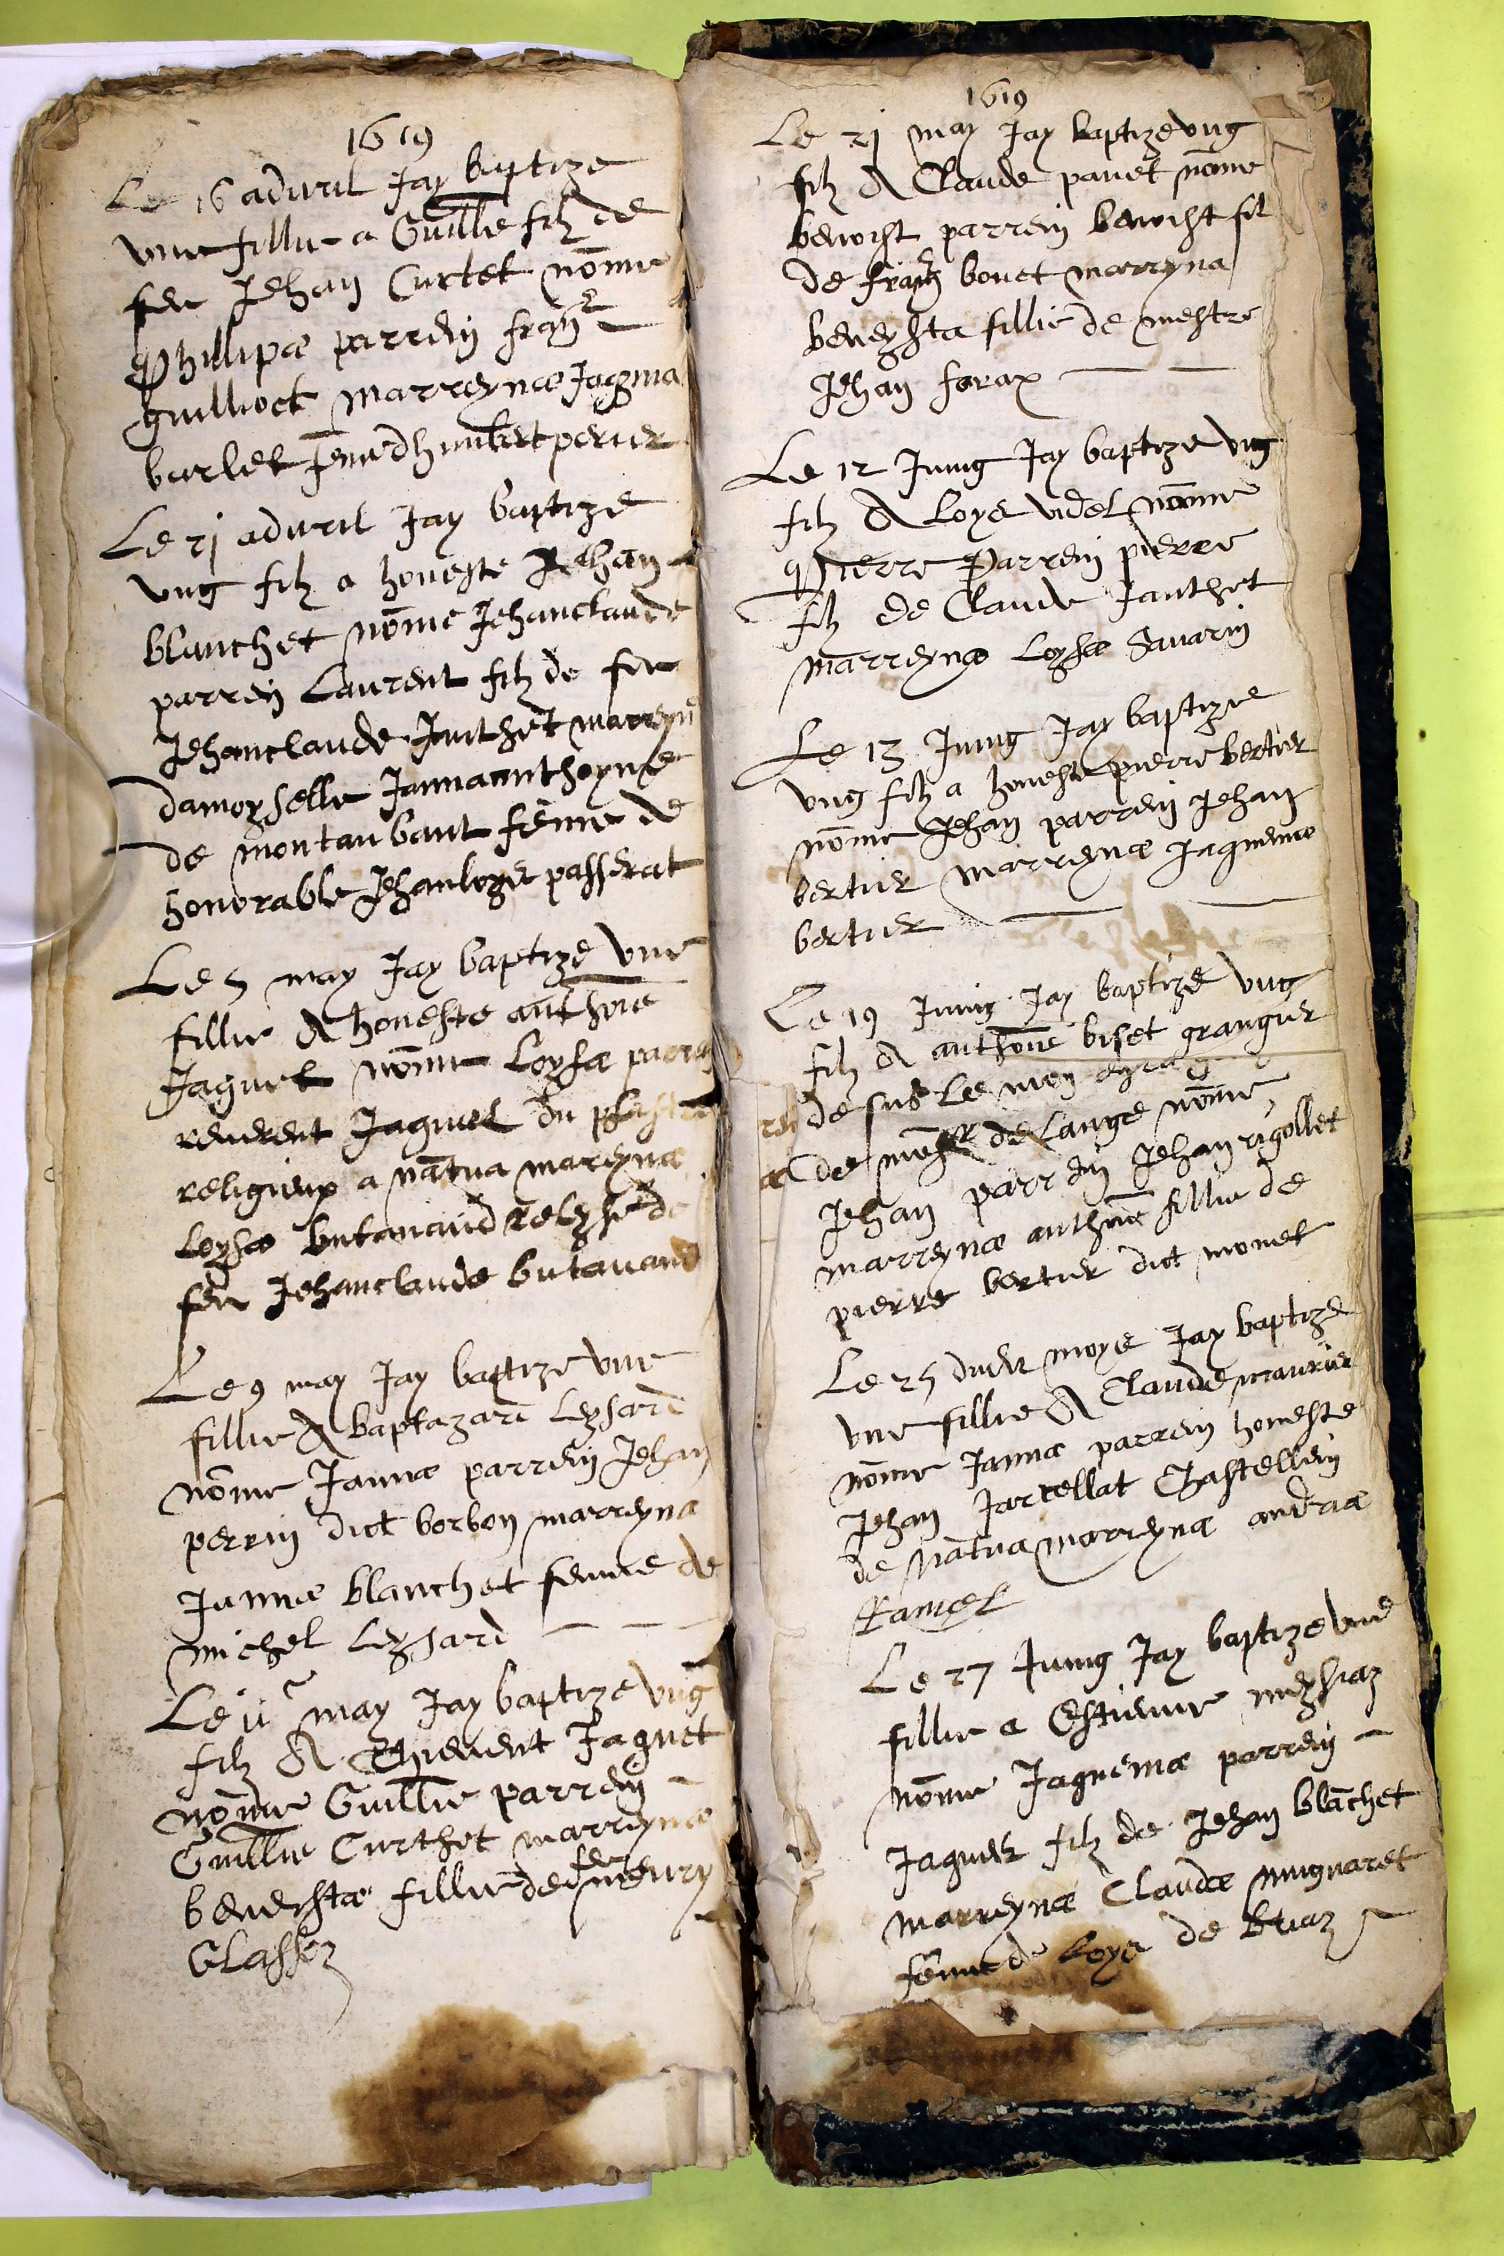 1619
Le 16 aduril Jay baptize
vne fillie a Guillie filz de
feu Jehan Curtet nōme
Phillipæ parrein franc
guillioet marreynæ Jaqma
burlet fēme d humbert perier
Le 21 aduril Jay baptize
vng filz a honeste Jehan
blanchet nōme Jehanclaude
parrein Laurent filz de feu
Jehanclaude Janthet marreyne
damoyselle Jannaanthoyne
de montaubant fēme de
honorable Jehanloys passerat
Le 5 may Jay baptize vne
fillie A honeste anthoïe
Jaquet nōme Loysæ parrein
reuerent Jaques du plastre
religieux a nātua mareynæ
Loysæ butauaud de
feu Jehanclaude butauaud
Le 9 may Jay baptize vne
fillie A baptazard Leysard
nōme Jannæ parrein Jehan
perrin dict borbon marreyna
Jannæ blanchet femme de
michel Leysard
Le 11 may Jay baptize vng
filz A Thieuent Jaquet
nōme Guillie parrein
Guillie Curthet marreynæ
beneystæ fillie de feu meury
Classez
1619
Le 21 may Jay baptize vng
filz A Claude pauet nōme
benoist parrein benoist fil
de franç bouet marreyna
beneysta fillie de mestre
Jehan forax
Le 12 Juing Jay baptize vng
filz A Loys videl nōme
Pierre Parrein pierre
filz de Claude Janthet
marreynæ Loysæ Sauarin
Le 13 Juing Jay baptize
vng filz a honeste pierre bertier
nōme Jehan parrein Jehan
bertier marreynæ Jaquemæ
bertier
Le 19 Juing Jay baptize vng
filz A anthoïe biset grangier
de sus le mon
de de Lange nōme
Jehan parrein Jehan rigollet
marreynæ anthoïe fillie de
pierre bertier dict monet
Le 25 dudit moys Jay baptize
vne fillie A Claude maurier
nōme Jannæ parrein honeste
Jehan Jarcellat Chastellein
de nātua marreynæ andræ
Ramel
Le 27 Juing Jay baptize vne
fillie a Estienne
nōme Jaquemæ parrein
Jaques filz de Jehan blāchet
marreynæ Claudæ muguaret
fēme de Loys de briaz